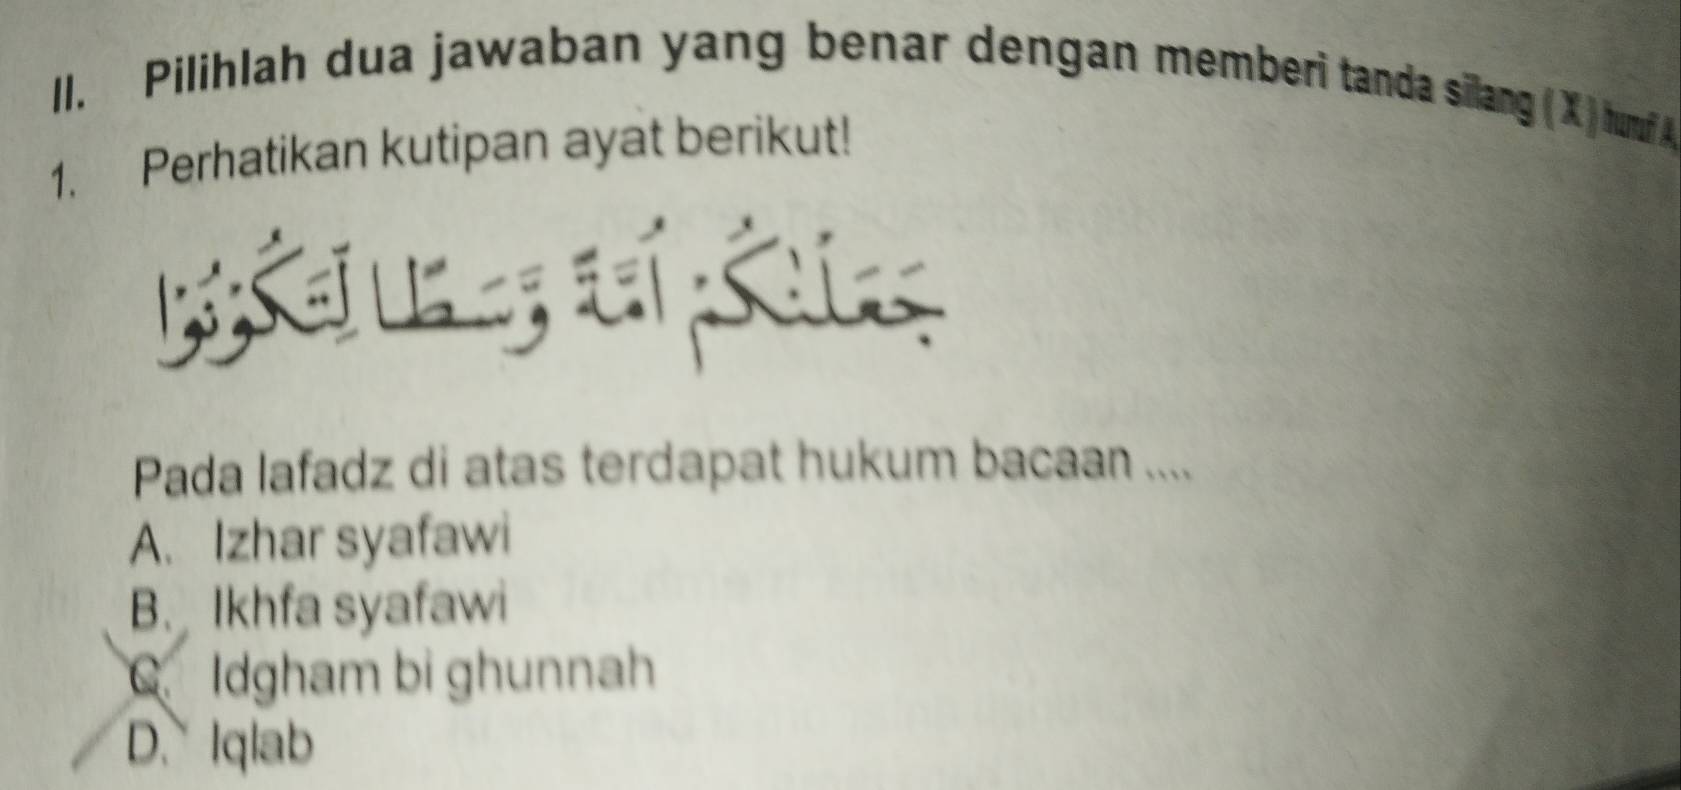 II. Pilihlah dua jawaban yang benar dengan memberi tanda silang ( X ) huruf A
1. Perhatikan kutipan ayat berikut!
جَعَلْنٰكُمْ اُمَّةً وَّسَطًا لِّتَكُوْنُوْا
Pada lafadz di atas terdapat hukum bacaan ....
A. Izhar syafawi
B. Ikhfa syafawi
C. Idgham bi ghunnah
D. Iqlab